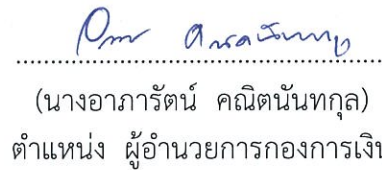 (นางอาภารัตน์ คณิตนันทกุล)
ตำแหน่ง ผู้อำนวยการกองการเงิน